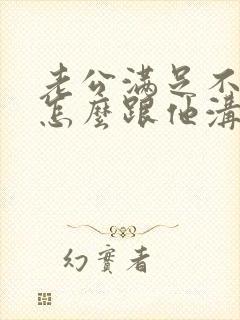 老公滿足不
怎麼跟他溝
幻實者